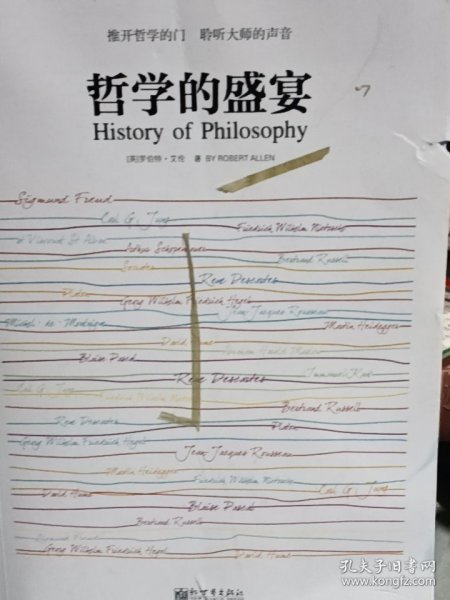 推开哲学的门 聆听大师的声音
哲学的盛宴
History of Philosophy
[英]罗伯特·艾伦 著 BY ROBERT ALLEN
Sigmund Freud
Carl G. Jung
Friedrich Wilhelm Nietzsche
Bertrand Russell
Rene Descartes
Georg Wilhelm Friedrich Hegel
Jean Jacques Rousseau
Martin Heidegger
David Hume
Blaise Pascal
Rene Descartes
Carl G. Jung
Bertrand Russell
Rene Descartes
Georg Wilhelm Friedrich Hegel
Jean Jacques Rousseau
Martin Heidegger
David Hume
Carl G. Jung
Blaise Pascal
Bertrand Russell
Sigmund Freud
Georg Wilhelm Friedrich Hegel
David Hume
新世界出版社
孔夫子旧书网
www.kongfz.com